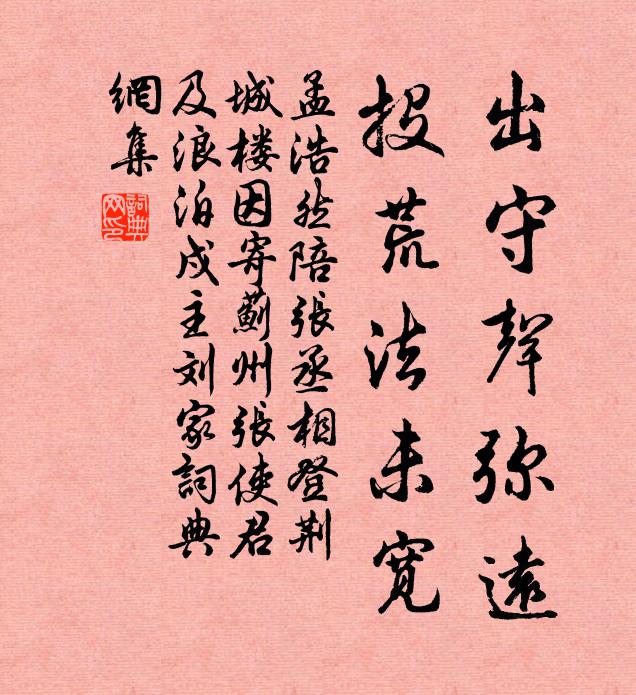 出守聲弥遠
投荒法未寬
孟浩然陪張丞相登荆
城楼因寄薊州張使君
及浪泊戍主刘家詞典
網集
詞典網印